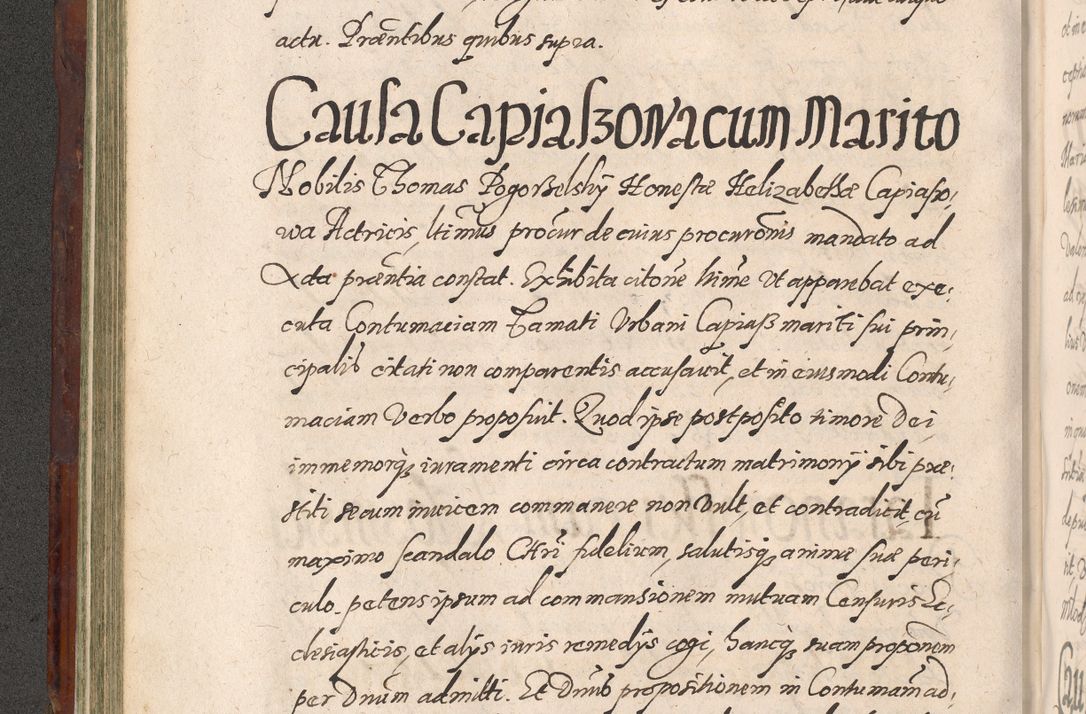 actu. Præntibus quibus supra.
Causa Capiaszowa cum Marito
Nobilis Thomas Pogorzelskÿ Honestæ Helizabethæ Capiaszo,
wa Actricis, ltimus procur de cuius procuronis mandato ad
Acta præntia constat. Exhibita citone hime Ut apparebat exe,
cuta Contumaciam Famati Urbani Capiasz mariti sui prin,
cipalis citati non comparentis accusavit, et in eiusmodi Contu,
maciam Verbo proposuit. Quod ipse postposito timore Dei,
immemorq iuramenti circa contractum matrimonÿ sibi præ,
stiti secum invicem commanere non Vult, et contradicit, cū
maximo scandalo Chri fidelium, salutisq animæ suæ peri,
culo. petens ipsum ad commansionem mutuam Censuris Ec,
clesiasticis, et alÿs iuris remedÿs cogi, hancq suam proponem
per Dnum admitti. Et Dnus propositionem in Contumam ad,